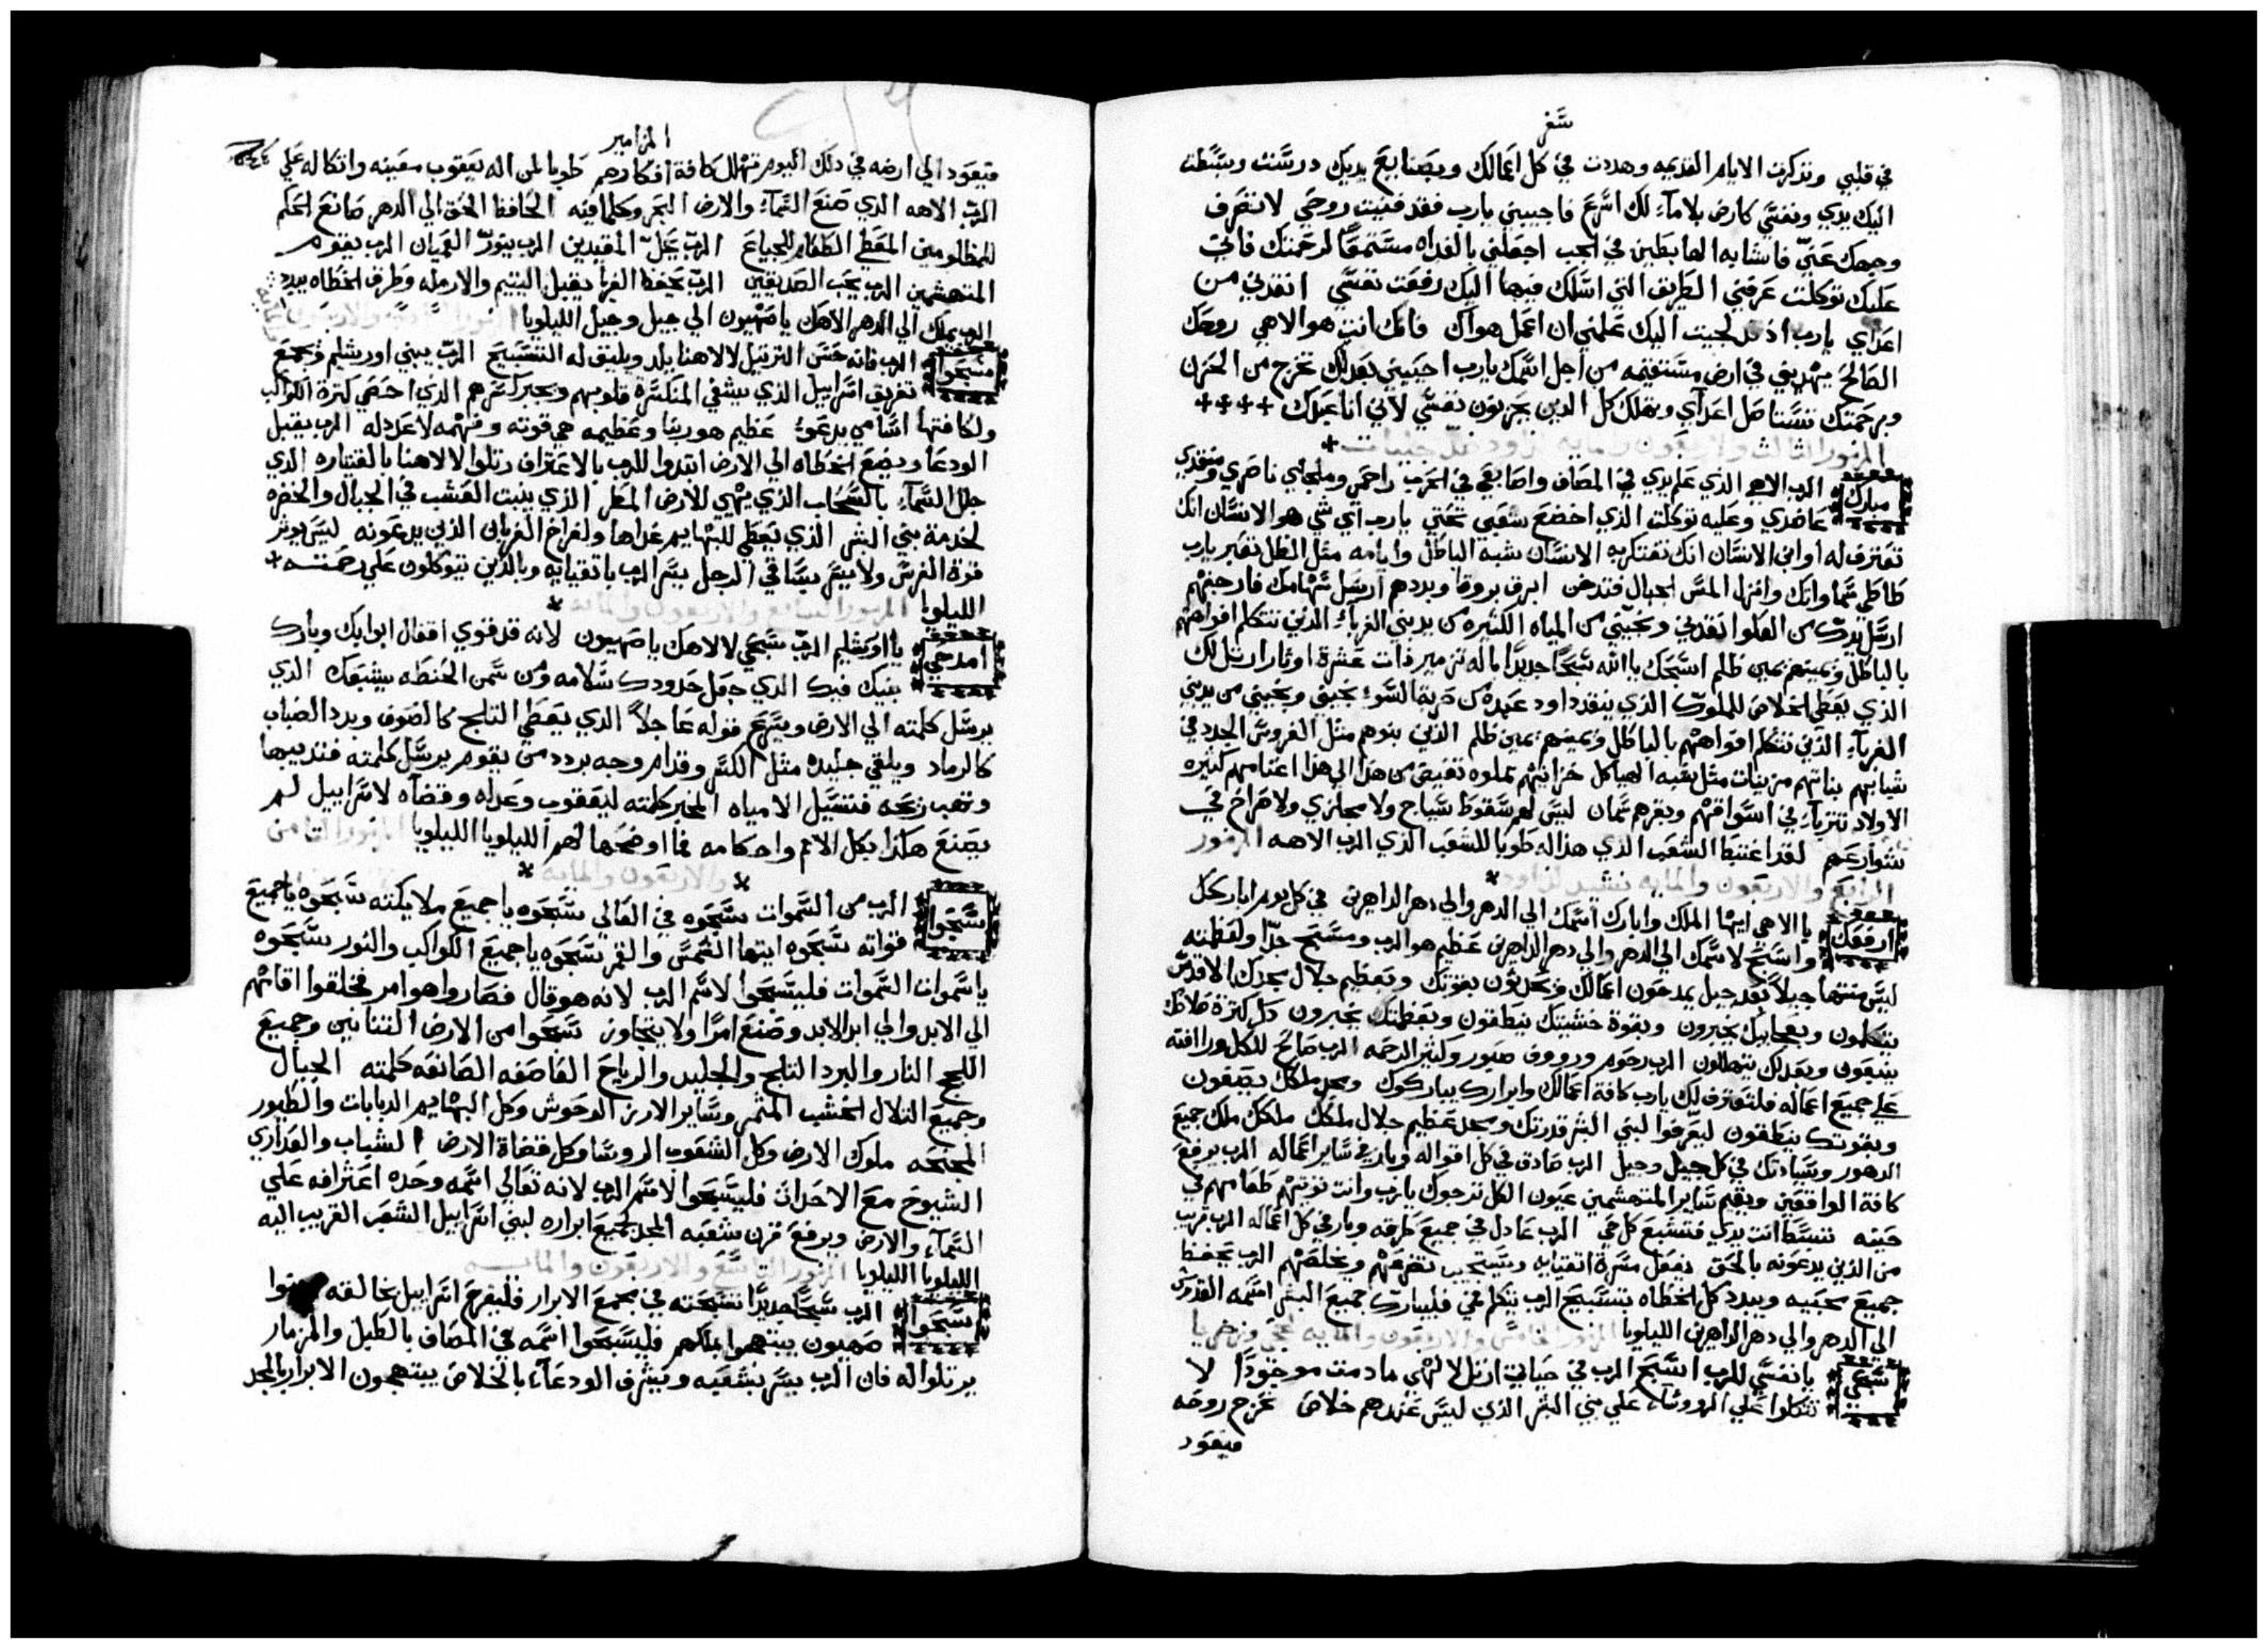 سفر
في قلبي وتذكرت الايام القديمه وهددت في كل اعمالك وبصنايع يديك درست وبسطت
اليك يدي ونفسي كارض بلا ماء لك اسرع فاجيبني يارب فقد فنيت روحي لا تصرف
وجهك عني فاشابه الهابطين في الجب اجعلني بالغداه مستمعًا لرحمتك فاني
عليك توكلت عرفني الطريق التي اسلك فيها اليك رفعت نفسي انقدني من
اعداي يارب اذ لجيت اليك علمني ان اعمل هواك فانك انت هو الاهي روحك
الصالح يهديني في ارض مستقيمه من اجل اسمك يارب احييني بعدلك تخرج من الحزن
وبرحمتك تستاصل اعداي وتهلك كل الدين يحزنون نفسي لاني انا عبدك
المزمور الثالث والاربعون والمايه لداود
مبارك الرب الاهي الذي علم يدي في المصاف واصابعي في الحرب راحمي وملجاي ناصري ومنقدي
عاضدي وعليه توكلت الذي اخضع شعبي تحتي يارب اي شي هو الانسان انك
تعترف له او ابن الانسان انك تفتكر به الانسان شبه الباطل وايامه مثل الظل تعبر يارب
طاطي سماواتك وانزل المس الجبال فتدخن ابرق بروقا وبددهم ارسل سهامك فازعجهم
ارسل يدك من العلو انقدني ونجيني من المياه الكثيره من يد بني الغرباء الذين تتكلم افواههم
بالباطل ويمينهم يمين ظلم اسبحك يا الله تسبيحًا جديدًا باله تزمير ذات عشرة اوتار ارتل لك
الذي يعطي الخلاص للملوك الذي ينقد داود عبده من حربة السوء نجيني ونجيني من يد بني
الغرباء الذين تتكلم افواههم بالباطل ويمينهم يمين ظلم الذين بنوهم مثل الغروس الجدد في
شبابهم بناتهم مزينات مثل شبه الهياكل خزاينهم مملوه تفيض من هدا الي هدا اغنامهم كثيره
الاولاد تتزيا في اسواقهم وبقرهم سمان ليس لهم سقوط سياج ولا مجازي ولا صراخ في
شوارعهم لقد اغتبط الشعب الذي هدا له طوبا للشعب الذي الرب الاهه المزمور
الرابع والاربعون والمايه تسبيح لداود
ارفعك يا الاهي ايها الملك وابارك اسمك الي الدهر والي دهر الداهرين في كل يوم اباركك
واسبح لاسمك الي الدهر والي دهر الداهرين عظيم هو الرب ومسبح جدًا ولعظمته
ليس منتها جيلًا بعد جيل يمدحون اعمالك ويخبرون بقوتك وبعظيم جلال مجدك الاقدس
يتكلمون وبعجايبك يخبرون وبقوة خشيتك ينطقون وبعظمتك يخبرون دكر كثرة صلاحك
ينبعون وبعدلك يتهللون الرب رحوم وروؤف صبور وكثير الرحمه الرب صالح للكل ورافته
علي جميع اعماله فلتعترف لك يارب كافة اعمالك وابرارك يباركوك ومجد ملكك يصفون
وبقوتك ينطقون ليعرفوا لبني البشر قدرتك ومجد عظيم جلال ملكك ملكك ملك جميع
الدهور وسيادتك في كل جيل وجيل الرب صادق في كل اقواله وبار في ساير اعماله الرب يرفع
كافة الواقعين ويقيم ساير المنهشمين عيون الكل ترجوك يارب وانت توتيهم طعامهم في
حينه تبسط انت يدي فتشبع كل حي الرب عادل في جميع طرقه وبار في كل اعماله الرب قريب
من الذين يدعونه بالحق يفعل مسرة اتقيايه ويستجيب تضرعهم ويخلصهم الرب يحفظ
جميع محبيه ويبدد كل الخطاه بتسبيح الرب يتكلم فمي فليبارك جميع البشر اسمه القدوس
الي الدهر والي دهر الداهرين الليلويا المزمور الخامس والاربعون والمايه لحجي وزخريا
سبحي يا نفسي للرب اسبح الرب في حياتي ارتل لالهي ما دمت موجودًا لا
تتكلوا علي الروساء علي بني البشر الذين ليس عندهم خلاص تخرج روحه
فيعود
المزامير
فيعود الي ارضه في دلك اليوم تهلك كافة افكارهم طوبا لمن اله يعقوب معينه واتكاله علي
الرب الاهه الذي صنع السماء والارض البحر وكلما فيه الحافظ الحق الي الدهر صانع الحكم
للمظلومين المعطي الطعام للجياع الرب يحل المقيدين الرب ينور العميان الرب يقوم
المنهشمين الرب يحب الصديقين الرب يحفظ الغربا يقبل اليتيم والارمله وطرق الخطاه يبدد
الرب يملك الي الدهر الاهك يا صهيون الي جيل وجيل الليلويا المزمور السادس والاربعون
سبحوا الرب فانه حسن الترتيل لالاهنا يلد ويليق له التسبيح الرب يبني اورشليم ويجمع
تفريق اسراييل الذي يشفي المنكسره قلوبهم ويجبر كسرهم الذي احصي كثرة الكواكب
ولكافتها اسامي يدعوا عظيم هو ربنا وعظيمه هي قوته وفهمه لا عدد له الرب يقبل
الودعا ويضع الخطاه الي الارض ابتدوا للرب بالاعتراف رتلوا لالاهنا بالقيتاره الذي
جلل السماء بالسحاب الذي يهيي للارض المطر الذي ينبت العشب في الجبال والخضره
لخدمة بني البشر الذي يعطي للبهايم غداها ولفراخ الغربان الذين يدعونه ليس يوثر
قوة الفرس ولا يسر بساقي الرجل يسر الرب باتقيايه وبالذين يتوكلون علي رحمته
الليلويا المزمور السابع والاربعون والمايه
امدحي يا اورشليم الرب سبحي لالاهك يا صهيون لانه قد قوي اقفال ابوابك وبارك
بنيك فيك الذي جعل حدودك سلامه ومن سمن الحنطه يشبعك الذي
يرسل كلمته الي الارض ويسرع قوله عاجلًا الذي يعطي الثلج كالصوف ويدد الضباب
كالرماد ويلقي جليده مثل الكسر وقدام وجه برده من يقوم يرسل كلمته فتديبها
وتهب ريحه فتسيل الامياه المخبر كلمته ليعقوب وعدله وقضاه لاسراييل لم
يصنع هكذا بكل الامم واحكامه فما اوضحها لهم الليلويا الليلويا المزمور الثامن
والاربعون والمايه
سبحوا الرب من السموات سبحوه في العالي سبحوه يا جميع ملايكته سبحوه يا جميع
قواته سبحوه ايتها الشمس والقمر سبحوه يا جميع الكواكب والنور سبحوه
يا سموات السموات فليسبحوا لاسم الرب لانه هو قال فصاروا هو امر فخلقوا اقامهم
الي الابد والي ابد الابد وصنع امرًا ولا يتجاوز سبحوا من الارض التنانين وجميع
اللجج النار والبرد الثلج والجليد والرياح العاصفه الصانعه كلمته الجبال
وجميع التلال الخشب المثمر وساير الارز الوحوش وكل البهايم الدبابات والطيور
المجنحه ملوك الارض وكل الشعوب الروسا وكل قضاة الارض الشباب والعداري
الشيوخ مع الاحداث فليسبحوا لاسم الرب لانه تعالي اسمه وحده اعترافه علي
السماء والارض ويرفع قرن شعبه المجد لجميع ابراره لبني اسراييل الشعب القريب اليه
الليلويا الليلويا المزمور التاسع والاربعون والمايه
سبحوا الرب تسبيحًا جديدًا تسبحته في مجمع الابرار فليفرح اسراييل بخالقه
صهيون يبتهجوا بملكهم فليسبحوا اسمه في المصاف بالطبل والمزمار
يرتلوا له فان الرب يسر بشعبه ويشرف الودعاء بالخلاص يبتهجون الابرار بالمجد